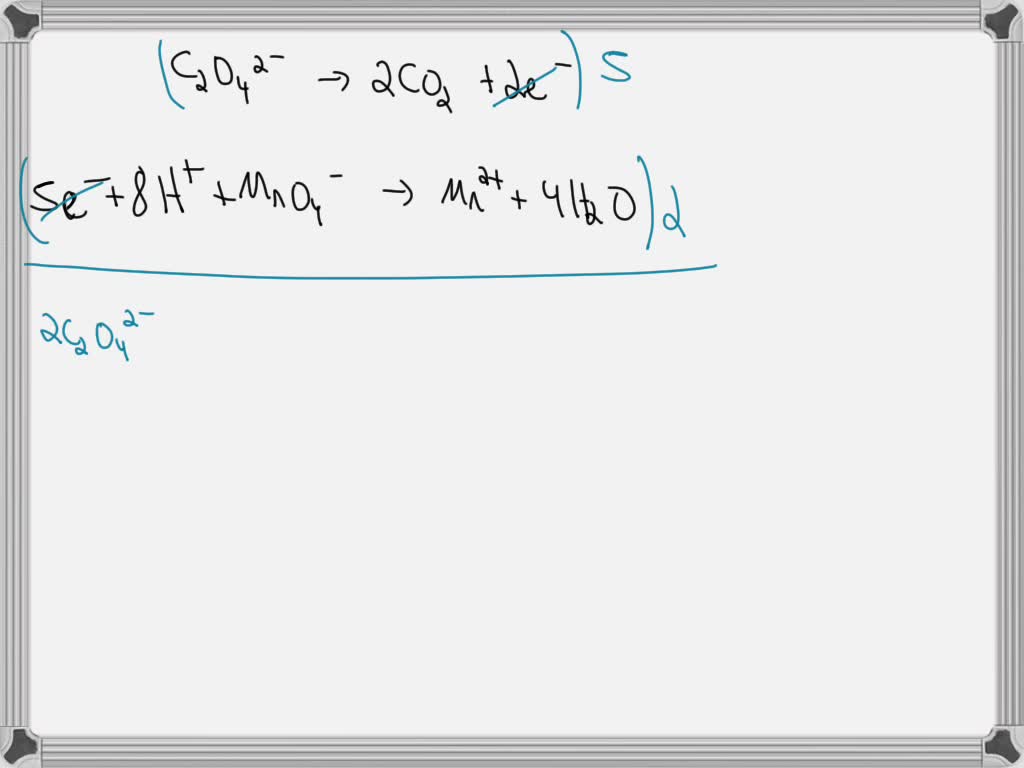 (C₂O₄²⁻ → 2CO₂ + 2e⁻) 5
(5e⁻ + 8H⁺ + MnO₄⁻ → Mn²⁺ + 4H₂O) 2
2C₂O₄²⁻